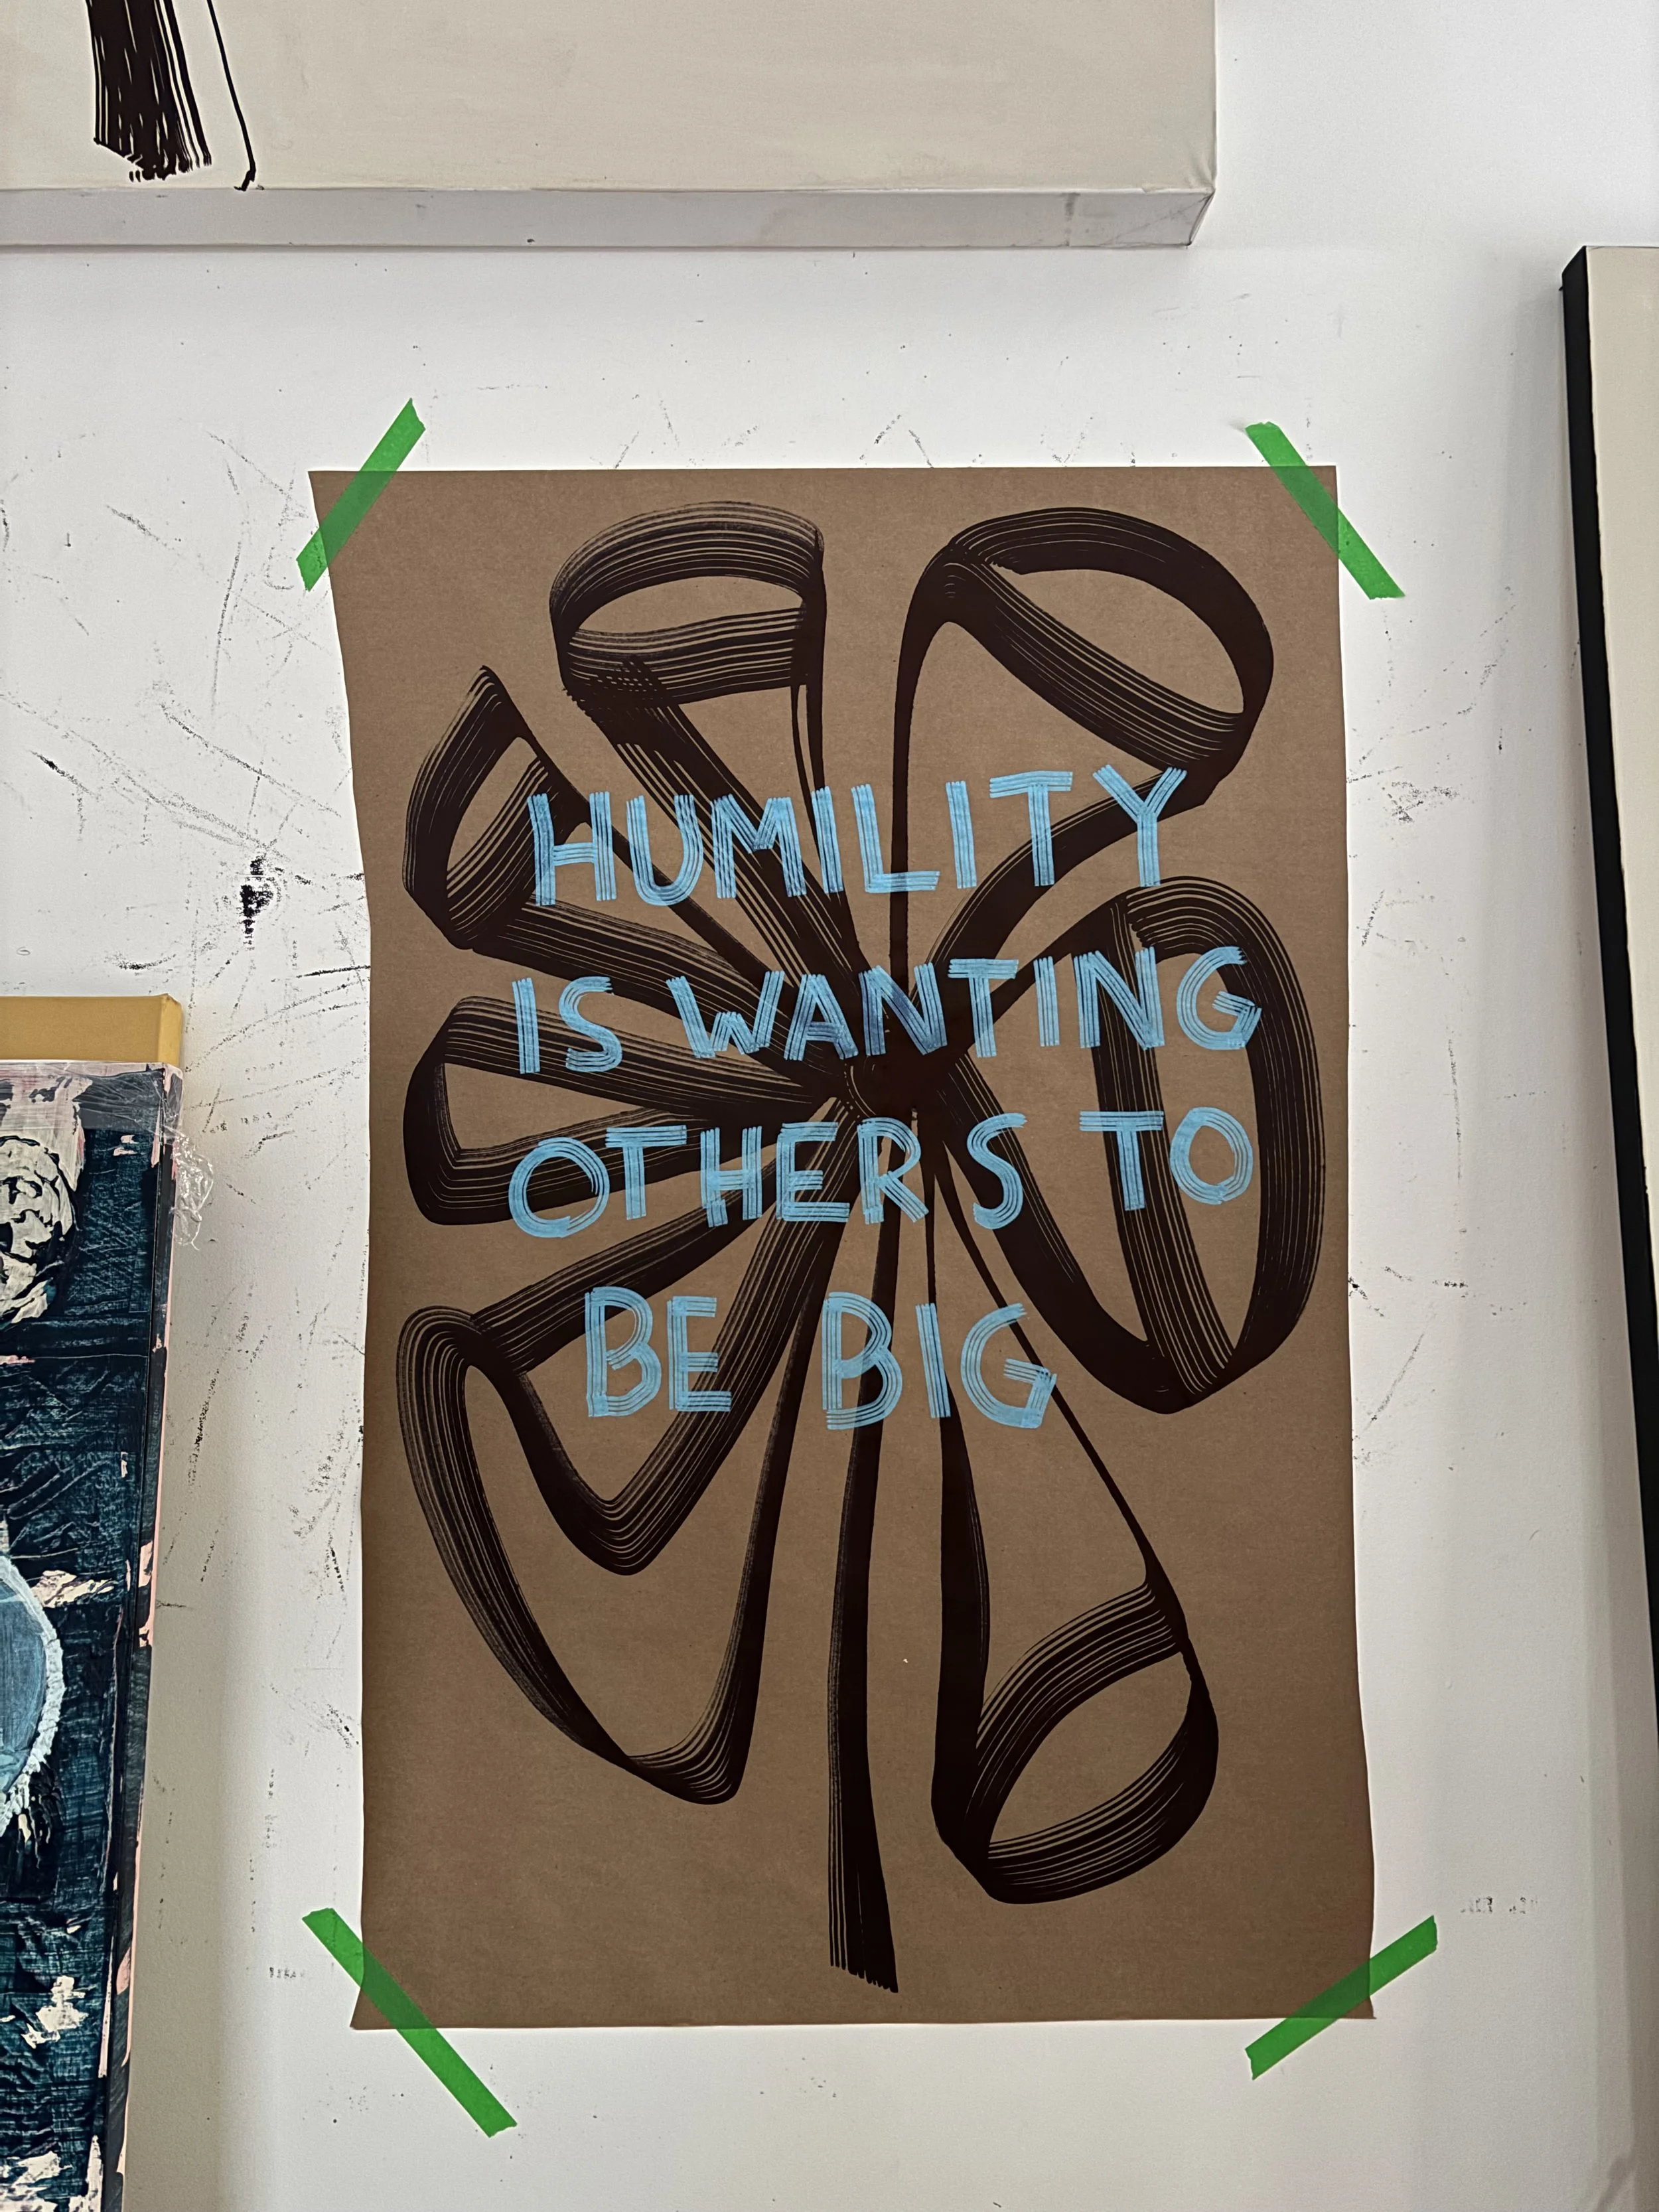 HUMILITY
IS WANTING
OTHERS TO
BE BIG